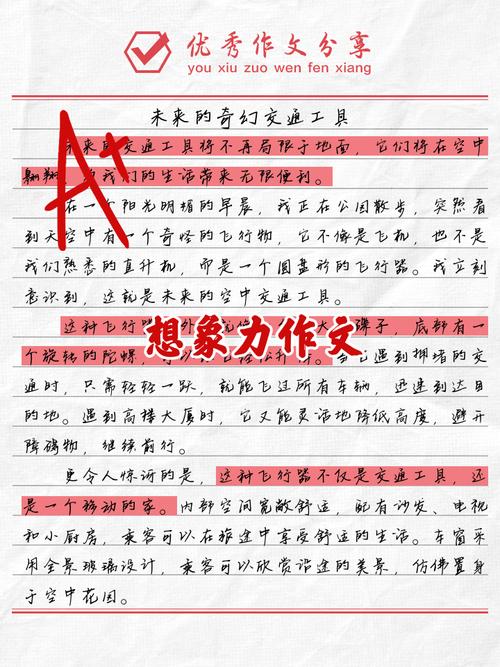 优秀作文分享
you xiu zuo wen fen xiang
未来的奇幻交通工具
A+
未来的交通工具将不再局限于地面，它们将在空中
翱翔，为我们的生活带来无限便利。
在一个阳光明媚的早晨，我正在公园散步，突然看
到天空中有一个奇怪的飞行物，它不像是飞机，也不是
我们熟悉的直升机，而是一个圆盘形的飞行器。我立刻
意识到，这就是未来的空中交通工具。
这种飞行器 大 碟子，底部有一
想象力作文
个旋转的陀螺， 它遇到拥堵的交
通时，只需轻轻一跃，就能飞过所有车辆，迅速到达目
的地。遇到高楼大厦时，它又能灵活地降低高度，避开
障碍物，继续前行。
更令人惊讶的是，这种飞行器不仅是交通工具，还
是一个移动的家。内部空间宽敞舒适，配有沙发、电视
和小厨房，乘客可以在旅途中享受舒适的生活。车窗采
用全景玻璃设计，乘客可以欣赏沿途的美景，仿佛置身
于空中花园。